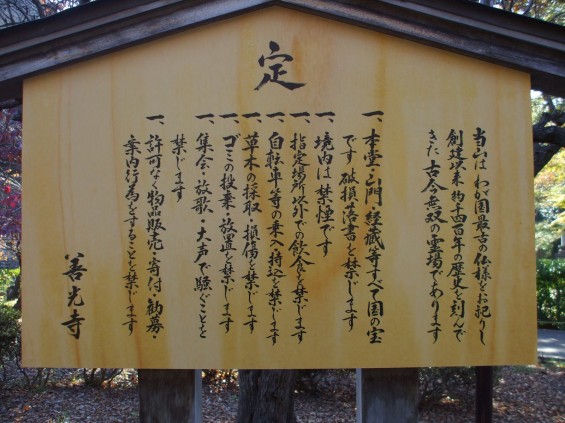 定
当山はわが国最古の仏様をお祀りし
創建以来約千四百年の歴史を刻んで
きた古今無双の霊場であります
一、本堂・山門・経蔵等すべて国の宝
です 破損落書を禁じます
一、境内は禁煙です
一、指定場所以外での飲食を禁じます
一、自転車等の乗入持込を禁じます
一、草木の採取・損傷を禁じます
一、ゴミの投棄・放置を禁じます
一、集会・放歌・大声で騒ぐことを
禁じます
一、許可なく物品販売・寄付・勧募・
案内行為をすることを禁じます
善光寺